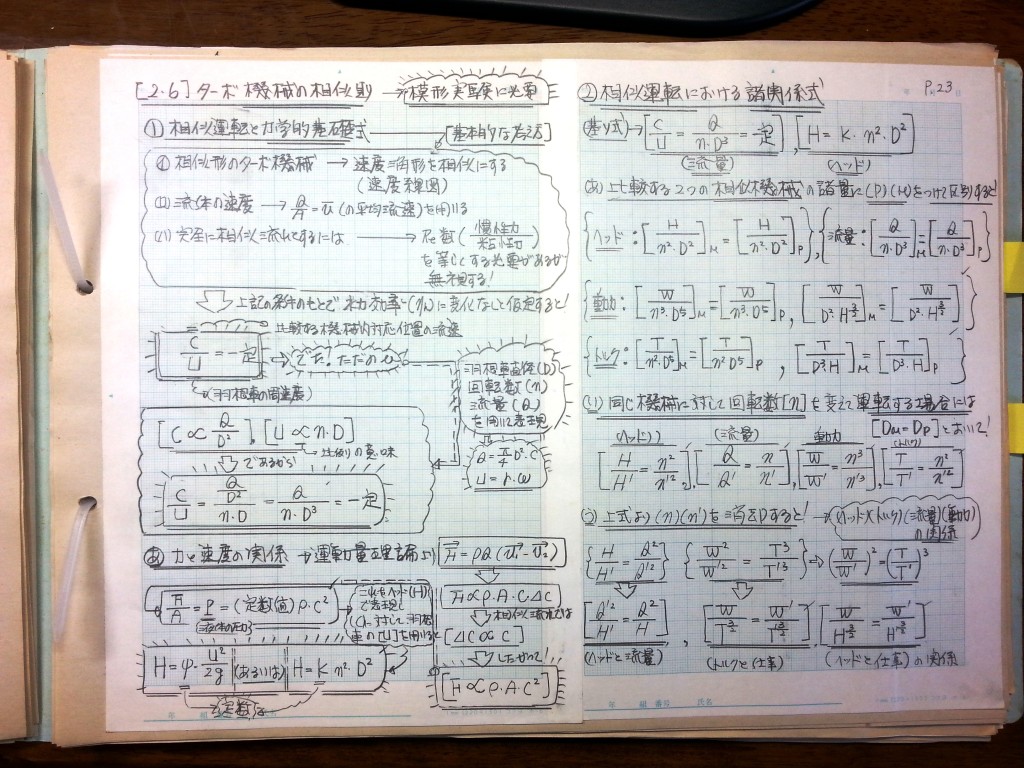 [2.6] ターボ機械の相似則 → 模形実験に必要
① 相似運転と力学的基礎式 [基本的な考え方]
(イ) 相似形のターボ機械 → 速度三角形を相似にする
(速度線図)
(ロ) 流体の速度 → Q/A = ū (の平均流速) を用いる
(ハ) 完全に相似流れとするには → Re数 (慣性力/粘性力)
を等しくする必要があるが
無視する!
上記の条件のもとで水力効率(ηh)に変化なしと仮定すると!
比較する機械内対応位置の流速
C/U = 一定
(羽根車の周速度)
羽根車直径(D)
回転数(n)
流量(Q)
を用いて表現
[C ∝ Q/D²], [U ∝ n・D]
比例の意味
であるから
Q = π/4 D²・C
U = r・ω
C/U = (Q/D²)/(n・D) = Q/(n・D³) = 一定
力と速度の関係 → 運動量理論より
F/A = P = (定数値) ρ・C²
(流体の圧力)
F ∝ ρ・A・C・ΔC
相似流れでは
[ΔC ∝ C]
したがって!
[F ∝ ρ・A・C²]
H = φ・U²/2g (あるいは) H = K n²・D²
定数
② 相似運転における諸関係式
P.23
(基リ式) → [C/U = Q/(n・D³) = 一定], [H = K・n²・D²]
(流量)
(ヘッド)
(あ) 比較する2つの相似機械の諸量に(P)(M)をつけて区別すると!
{ヘッド: [H/(n²・D²)]M = [H/(n²・D²)]P}, {流量: [Q/(n・D³)]M = [Q/(n・D³)]P}
{動力: [W/(n³・D⁵)]M = [W/(n³・D⁵)]P, [W/(D²・H^3/2)]M = [W/(D²・H^3/2)]P}
{トルク: [T/(n²・D⁵)]M = [T/(n²・D⁵)]P, [T/(D³・H)]M = [T/(D³・H)]P}
(い) 同じ機械に対して回転数[n]を変えて運転する場合には
[DM = DP] とおいて!
(ヘッド) (流量) 動力 (トルク)
[H/H' = n²/n'²], [Q/Q' = n/n'], [W/W' = n³/n'³], [T/T' = n²/n'²]
(う) 上式より(n)(n')を消去すると! → (ヘッド)(トルク)(流量)(動力)
の関係
{H/H' = Q²/Q'²} {W²/W'² = T³/T'³} ⇒ (W/W')² = (T/T')³
[Q'²/H' = Q²/H], [W/T^3/2 = W'/T'^3/2], [W/H^3/2 = W'/H'^3/2]
(ヘッドと流量) (トルクと仕事) (ヘッドと仕事)の関係
年 組 番号 氏名
年 組 番号 氏名